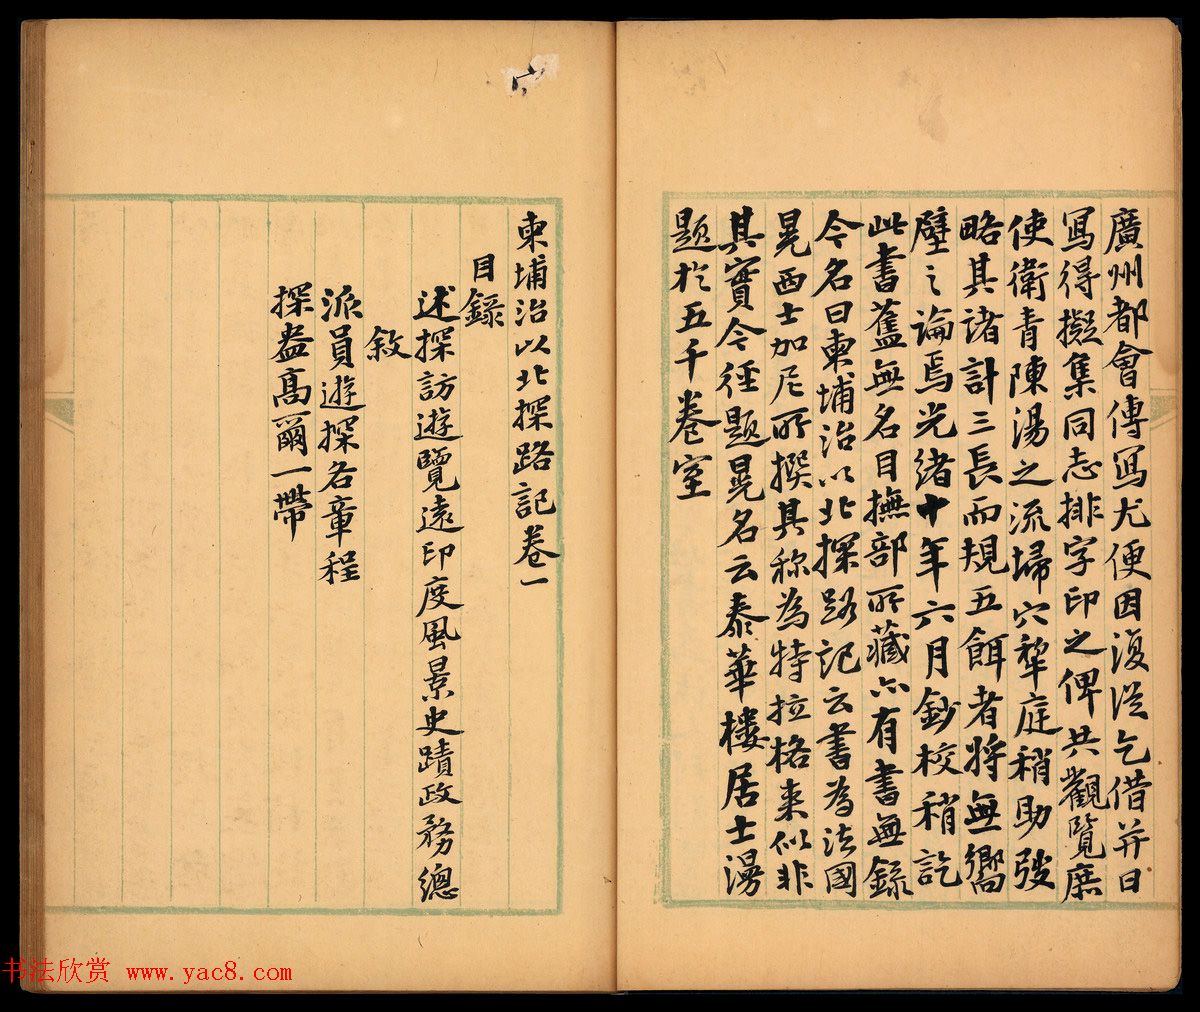 廣州都會傳寫尤便因復從乞借并日
寫得擬集同志排字印之俾共觀覽庶
使衛青陳湯之流埽穴犂庭稍助發
略其諸計三長而規五餌者將無嚮
壁之論焉光緒十年六月鈔校稍訖
此書舊無名目撫部所藏亦有書無錄
今名曰柬埔治以北探路記云書為法國
晃西士加尼所撰其称為特拉格来似非
其實今徑題晃名云泰華樓居士漫
題於五千卷室
柬埔治以北探路記卷一
目錄
述探訪遊覽遠印度風景史蹟政務總
敘
派員遊探各章程
探盎高爾一帶
书法欣赏 www.yac8.com